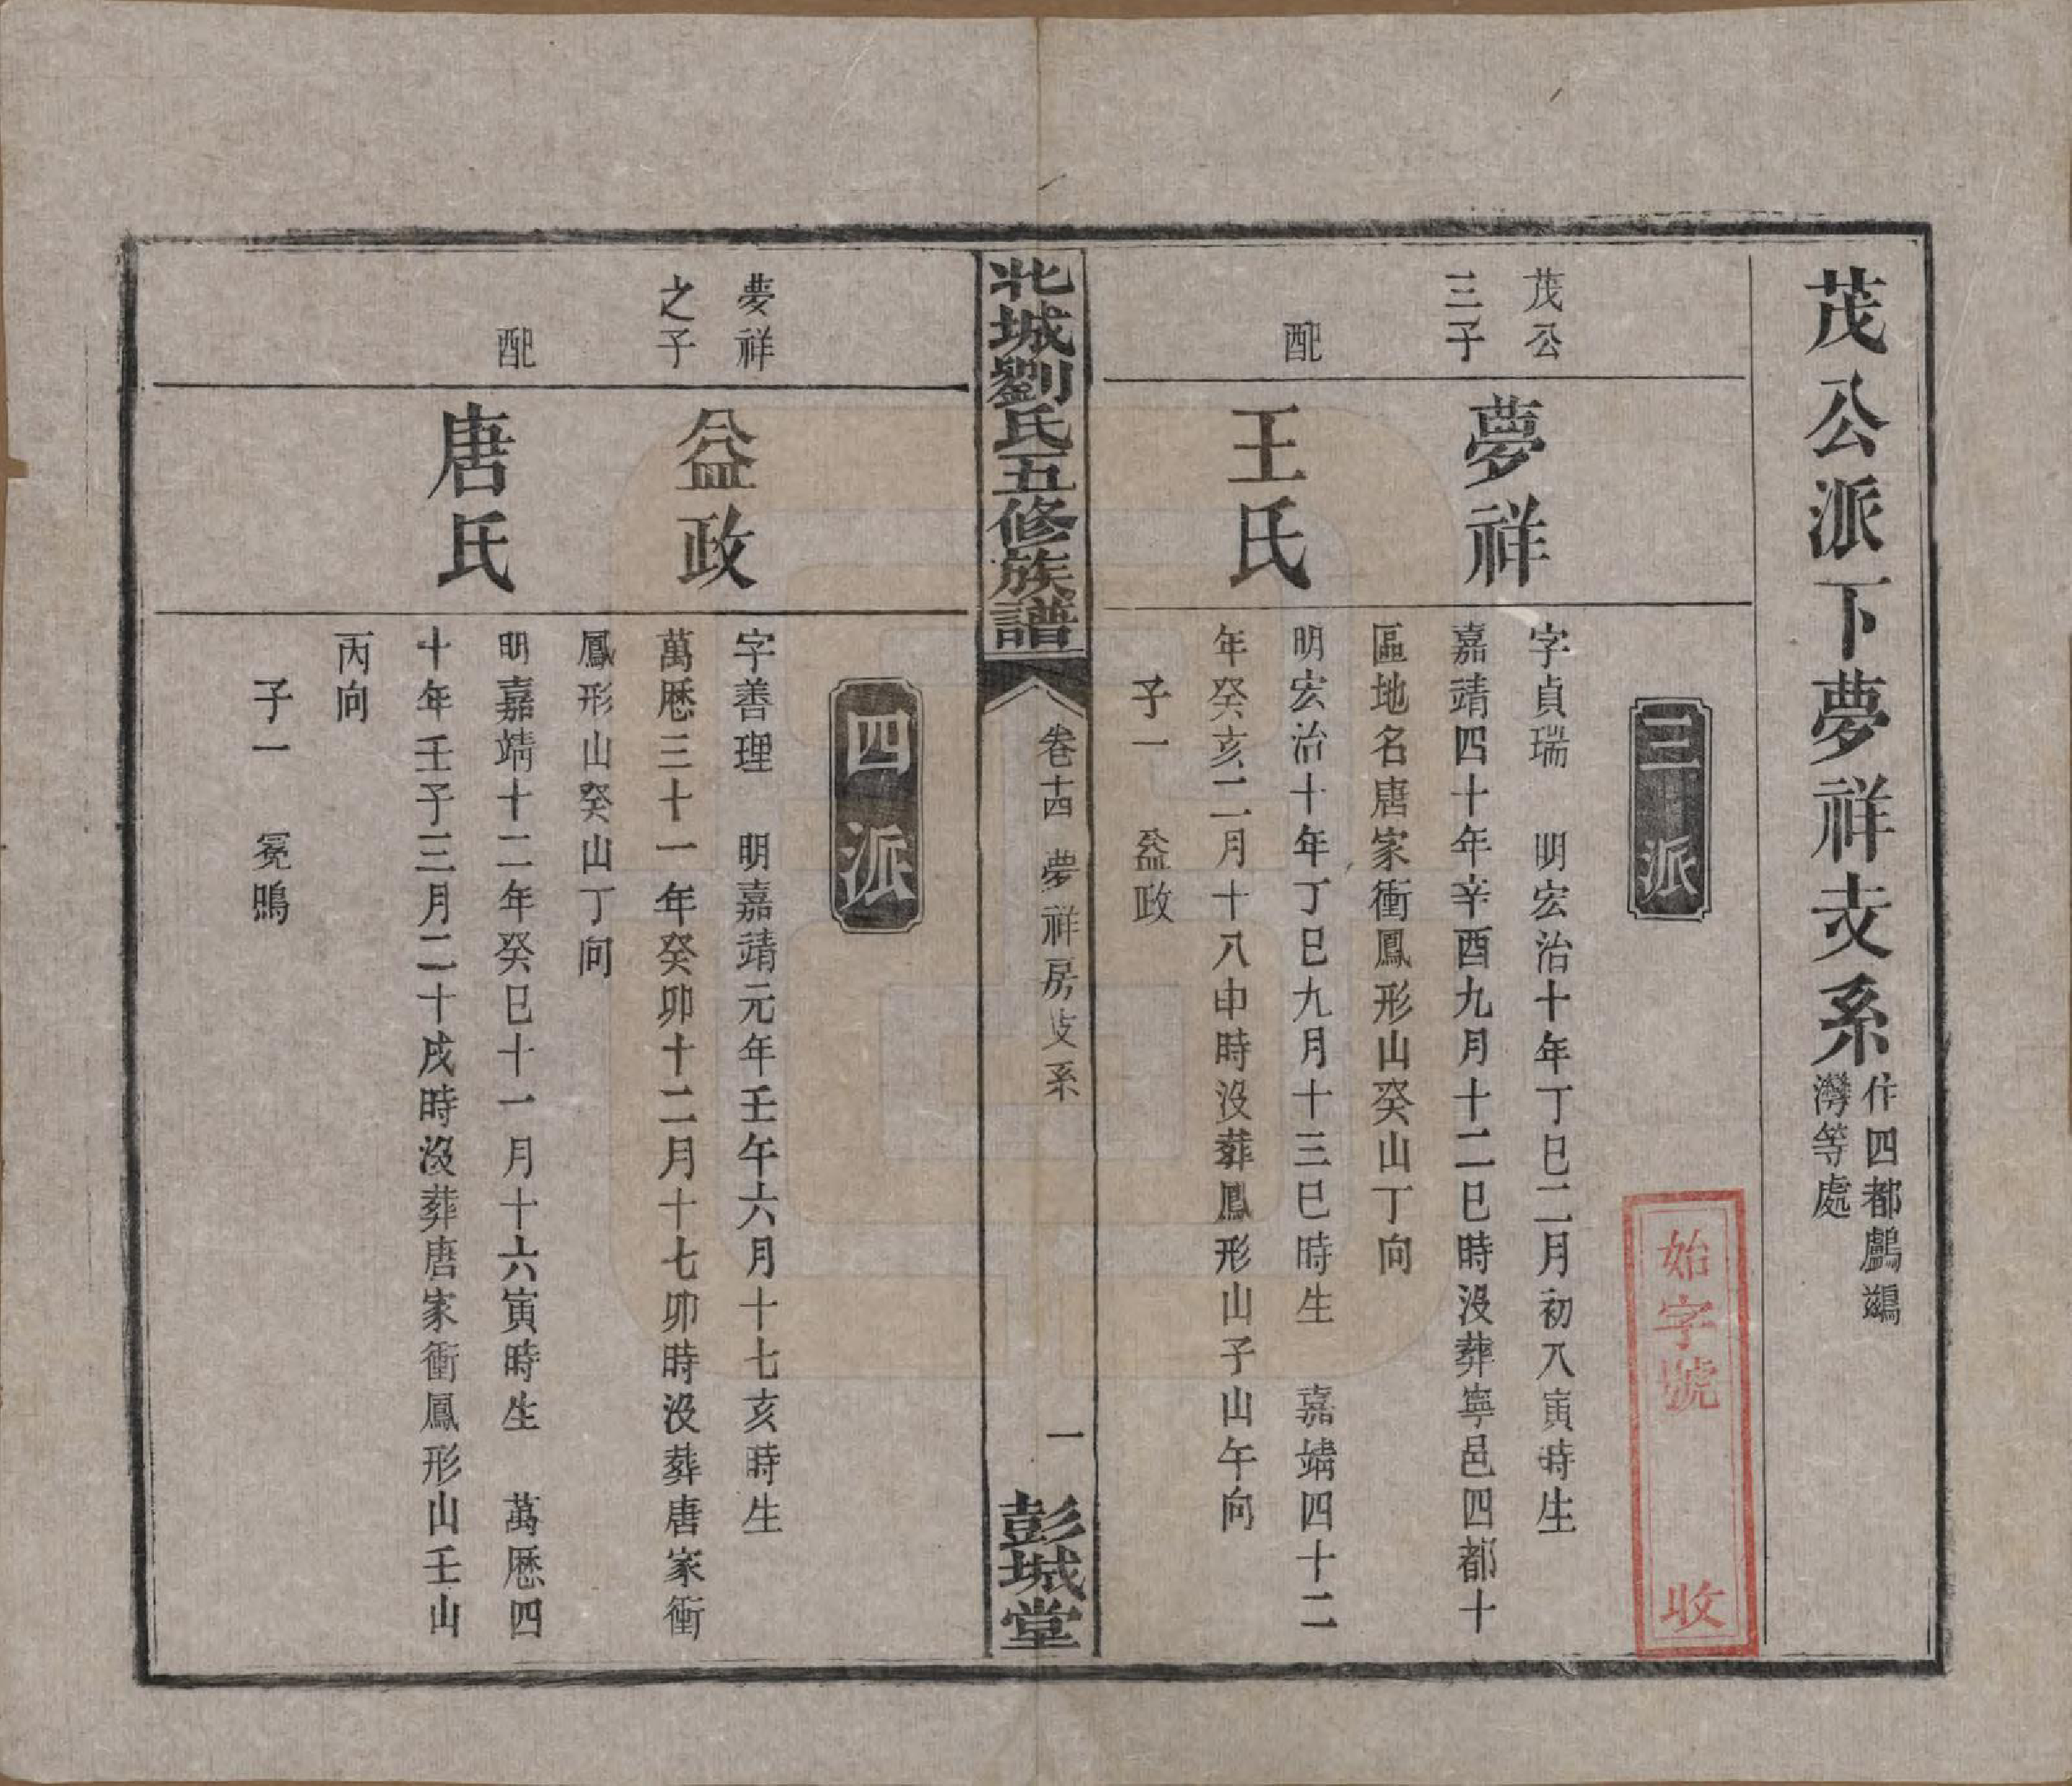 茂公派下夢祥支系
住四都鸕鷀
灣等處
始字號 收
三派
茂公
三子
夢祥
字貞瑞 明宏治十年丁巳二月初八寅時生
嘉靖四十年辛酉九月十二巳時没葬寧邑四都十
區地名唐家衝鳳形山癸山丁向
配
王氏
明宏治十年丁巳九月十三巳時生 嘉靖四十二
年癸亥二月十八申時没葬鳳形山子山午向
子一 益政
北城劉氏五修族譜
卷十四 夢祥房支系
一
彭城堂
四派
夢祥
之子
益政
字善理 明嘉靖元年壬午六月十七亥時生
萬歷三十一年癸卯十二月十七卯時没葬唐家衝
鳳形山癸山丁向
配
唐氏
明嘉靖十二年癸巳十一月十六寅時生 萬歷四
十年壬子三月二十戌時没葬唐家衝鳳形山壬山
丙向
子一 冕鳴